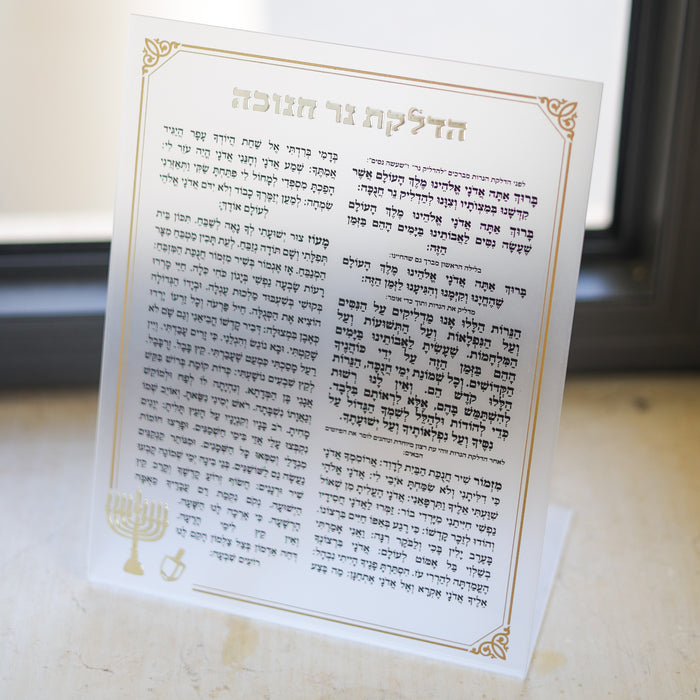 הדלקת נר חנוכה
לפני הדלקת הנרות מברכים "להדליק נר" ו"שעשה נסים":
בָּרוּךְ אַתָּה אֲדֹנָי אֱלֹהֵינוּ מֶלֶךְ הָעוֹלָם אֲשֶׁר
קִדְּשָׁנוּ בְּמִצְוֹתָיו וְצִוָּנוּ לְהַדְלִיק נֵר חֲנֻכָּה:
בָּרוּךְ אַתָּה אֲדֹנָי אֱלֹהֵינוּ מֶלֶךְ הָעוֹלָם
שֶׁעָשָׂה נִסִּים לַאֲבוֹתֵינוּ בַּיָּמִים הָהֵם בַּזְּמַן
הַזֶּה:
בלילה הראשון מברך גם שהחיינו:
בָּרוּךְ אַתָּה אֲדֹנָי אֱלֹהֵינוּ מֶלֶךְ הָעוֹלָם
שֶׁהֶחֱיָנוּ וְקִיְּמָנוּ וְהִגִּיעָנוּ לַזְּמַן הַזֶּה:
מדליק את הנרות ותוך כדי אומר:
הַנֵּרוֹת הַלָּלוּ אָנוּ מַדְלִיקִים עַל הַנִּסִּים
וְעַל הַנִּפְלָאוֹת וְעַל הַתְּשׁוּעוֹת וְעַל
הַמִּלְחָמוֹת. שֶׁעָשִׂיתָ לַאֲבוֹתֵינוּ בַּיָּמִים
הָהֵם בַּזְּמַן הַזֶּה. עַל יְדֵי כֹּהֲנֶיךָ
הַקְּדוֹשִׁים. וְכָל שְׁמוֹנַת יְמֵי חֲנֻכָּה. הַנֵּרוֹת
הַלָּלוּ קֹדֶשׁ הֵם. וְאֵין לָנוּ רְשׁוּת
לְהִשְׁתַּמֵּשׁ בָּהֶם. אֶלָּא לִרְאוֹתָם בִּלְבָד.
כְּדֵי לְהוֹדוֹת וּלְהַלֵּל לְשִׁמְךָ הַגָּדוֹל עַל
נִסֶּיךָ וְעַל נִפְלְאוֹתֶיךָ וְעַל יְשׁוּעָתֶךָ.
לאחר הדלקת הנרות זוהי עת רצון מיוחדת ונוהגים לומר את הפרקים
הבאים:
מִזְמוֹר שִׁיר חֲנֻכַּת הַבַּיִת לְדָוִד: אֲרוֹמִמְךָ אֲדֹנָי
כִּי דִלִּיתָנִי וְלֹא שִׂמַּחְתָּ אֹיְבַי לִי: אֲדֹנָי אֱלֹהָי
שִׁוַּעְתִּי אֵלֶיךָ וַתִּרְפָּאֵנִי: אֲדֹנָי הֶעֱלִיתָ מִן שְׁאוֹל
נַפְשִׁי חִיִּיתַנִי מִיָּרְדִי בוֹר: זַמְּרוּ לַאֲדֹנָי חֲסִידָיו
וְהוֹדוּ לְזֵכֶר קָדְשׁוֹ: כִּי רֶגַע בְּאַפּוֹ חַיִּים בִּרְצוֹנוֹ
בָּעֶרֶב יָלִין בֶּכִי וְלַבֹּקֶר רִנָּה: וַאֲנִי אָמַרְתִּי
בְשַׁלְוִי בַּל אֶמּוֹט לְעוֹלָם: אֲדֹנָי בִּרְצוֹנְךָ
הֶעֱמַדְתָּה לְהַרְרִי עֹז. הִסְתַּרְתָּ פָנֶיךָ הָיִיתִי נִבְהָל:
אֵלֶיךָ אֲדֹנָי אֶקְרָא וְאֶל אֲדֹנָי אֶתְחַנָּן: מַה בֶּצַע
בְּדָמִי בְּרִדְתִּי אֶל שָׁחַת הֲיוֹדְךָ עָפָר הֲיַגִּיד
אֲמִתֶּךָ: שְׁמַע אֲדֹנָי וְחָנֵּנִי אֲדֹנָי הֱיֵה עֹזֵר לִי:
הָפַכְתָּ מִסְפְּדִי לְמָחוֹל לִי פִּתַּחְתָּ שַׂקִּי וַתְּאַזְּרֵנִי
שִׂמְחָה: לְמַעַן יְזַמֶּרְךָ כָבוֹד וְלֹא יִדֹּם אֲדֹנָי אֱלֹהַי
לְעוֹלָם אוֹדֶךָּ:
מָעוֹז צוּר יְשׁוּעָתִי לְךָ נָאֶה לְשַׁבֵּחַ. תִּכּוֹן בֵּית
תְּפִלָּתִי וְשָׁם תּוֹדָה נְזַבֵּחַ. לְעֵת תָּכִין מַטְבֵּחַ מִצָּר
הַמְנַבֵּחַ. אָז אֶגְמוֹר בְּשִׁיר מִזְמוֹר חֲנֻכַּת הַמִּזְבֵּחַ:
רָעוֹת שָׂבְעָה נַפְשִׁי בְּיָגוֹן כֹּחִי כָּלָה. חַיַּי מֵרְרוּ
בְקוֹשִׁי בְּשִׁעְבּוּד מַלְכוּת עֶגְלָה. וּבְיָדוֹ הַגְּדוֹלָה
הוֹצִיא אֶת הַסְּגֻלָּה. חֵיל פַּרְעֹה וְכָל זַרְעוֹ יָרְדוּ
כְאֶבֶן בִּמְצוּלָה: דְּבִיר קָדְשׁוֹ הֱבִיאַנִי וְגַם שָׁם לֹא
שָׁקַטְתִּי. וּבָא נוֹגֵשׂ וְהִגְלַנִי. כִּי זָרִים עָבַדְתִּי. וְיֵין
רַעַל מָסַכְתִּי כִּמְעַט שֶׁעָבַרְתִּי. קֵץ בָּבֶל. זְרֻבָּבֶל.
לְקֵץ שִׁבְעִים נוֹשַׁעְתִּי: כְּרוֹת קוֹמַת בְּרוֹשׁ בִּקֵּשׁ
אֲגָגִי בֶּן הַמְּדָתָא. וְנִהְיָתָה לוֹ לְפַח וּלְמוֹקֵשׁ
וְגַאֲוָתוֹ נִשְׁבָּתָה. רֹאשׁ יְמִינִי נִשֵּׂאתָ. וְאוֹיֵב שְׁמוֹ
מָחִיתָ. רֹב בָּנָיו וְקִנְיָנָיו עַל הָעֵץ תָּלִיתָ: יְוָנִים
נִקְבְּצוּ עָלַי אֲזַי בִּימֵי חַשְׁמַנִּים. וּפָרְצוּ חוֹמוֹת
מִגְדָּלַי וְטִמְּאוּ כָּל הַשְּׁמָנִים. וּמִנּוֹתַר קַנְקַנִּים
נַעֲשָׂה נֵס לַשּׁוֹשַׁנִּים. בְּנֵי בִינָה יְמֵי שְׁמוֹנָה קָבְעוּ
שִׁיר וּרְנָנִים: חֲשׂוֹף זְרוֹעַ קָדְשֶׁךָ וְקָרֵב קֵץ
הַיְשׁוּעָה. נְקֹם נִקְמַת דַּם עֲבָדֶיךָ מֵאֻמָּה
הָרְשָׁעָה. כִּי אָרְכָה לָנוּ הַשָּׁעָה.
וְאֵין קֵץ לִימֵי הָרָעָה.
דְּחֵה אַדְמוֹן בְּצֵל צַלְמוֹן הָקֵם לָנוּ
רוֹעִים שִׁבְעָה: